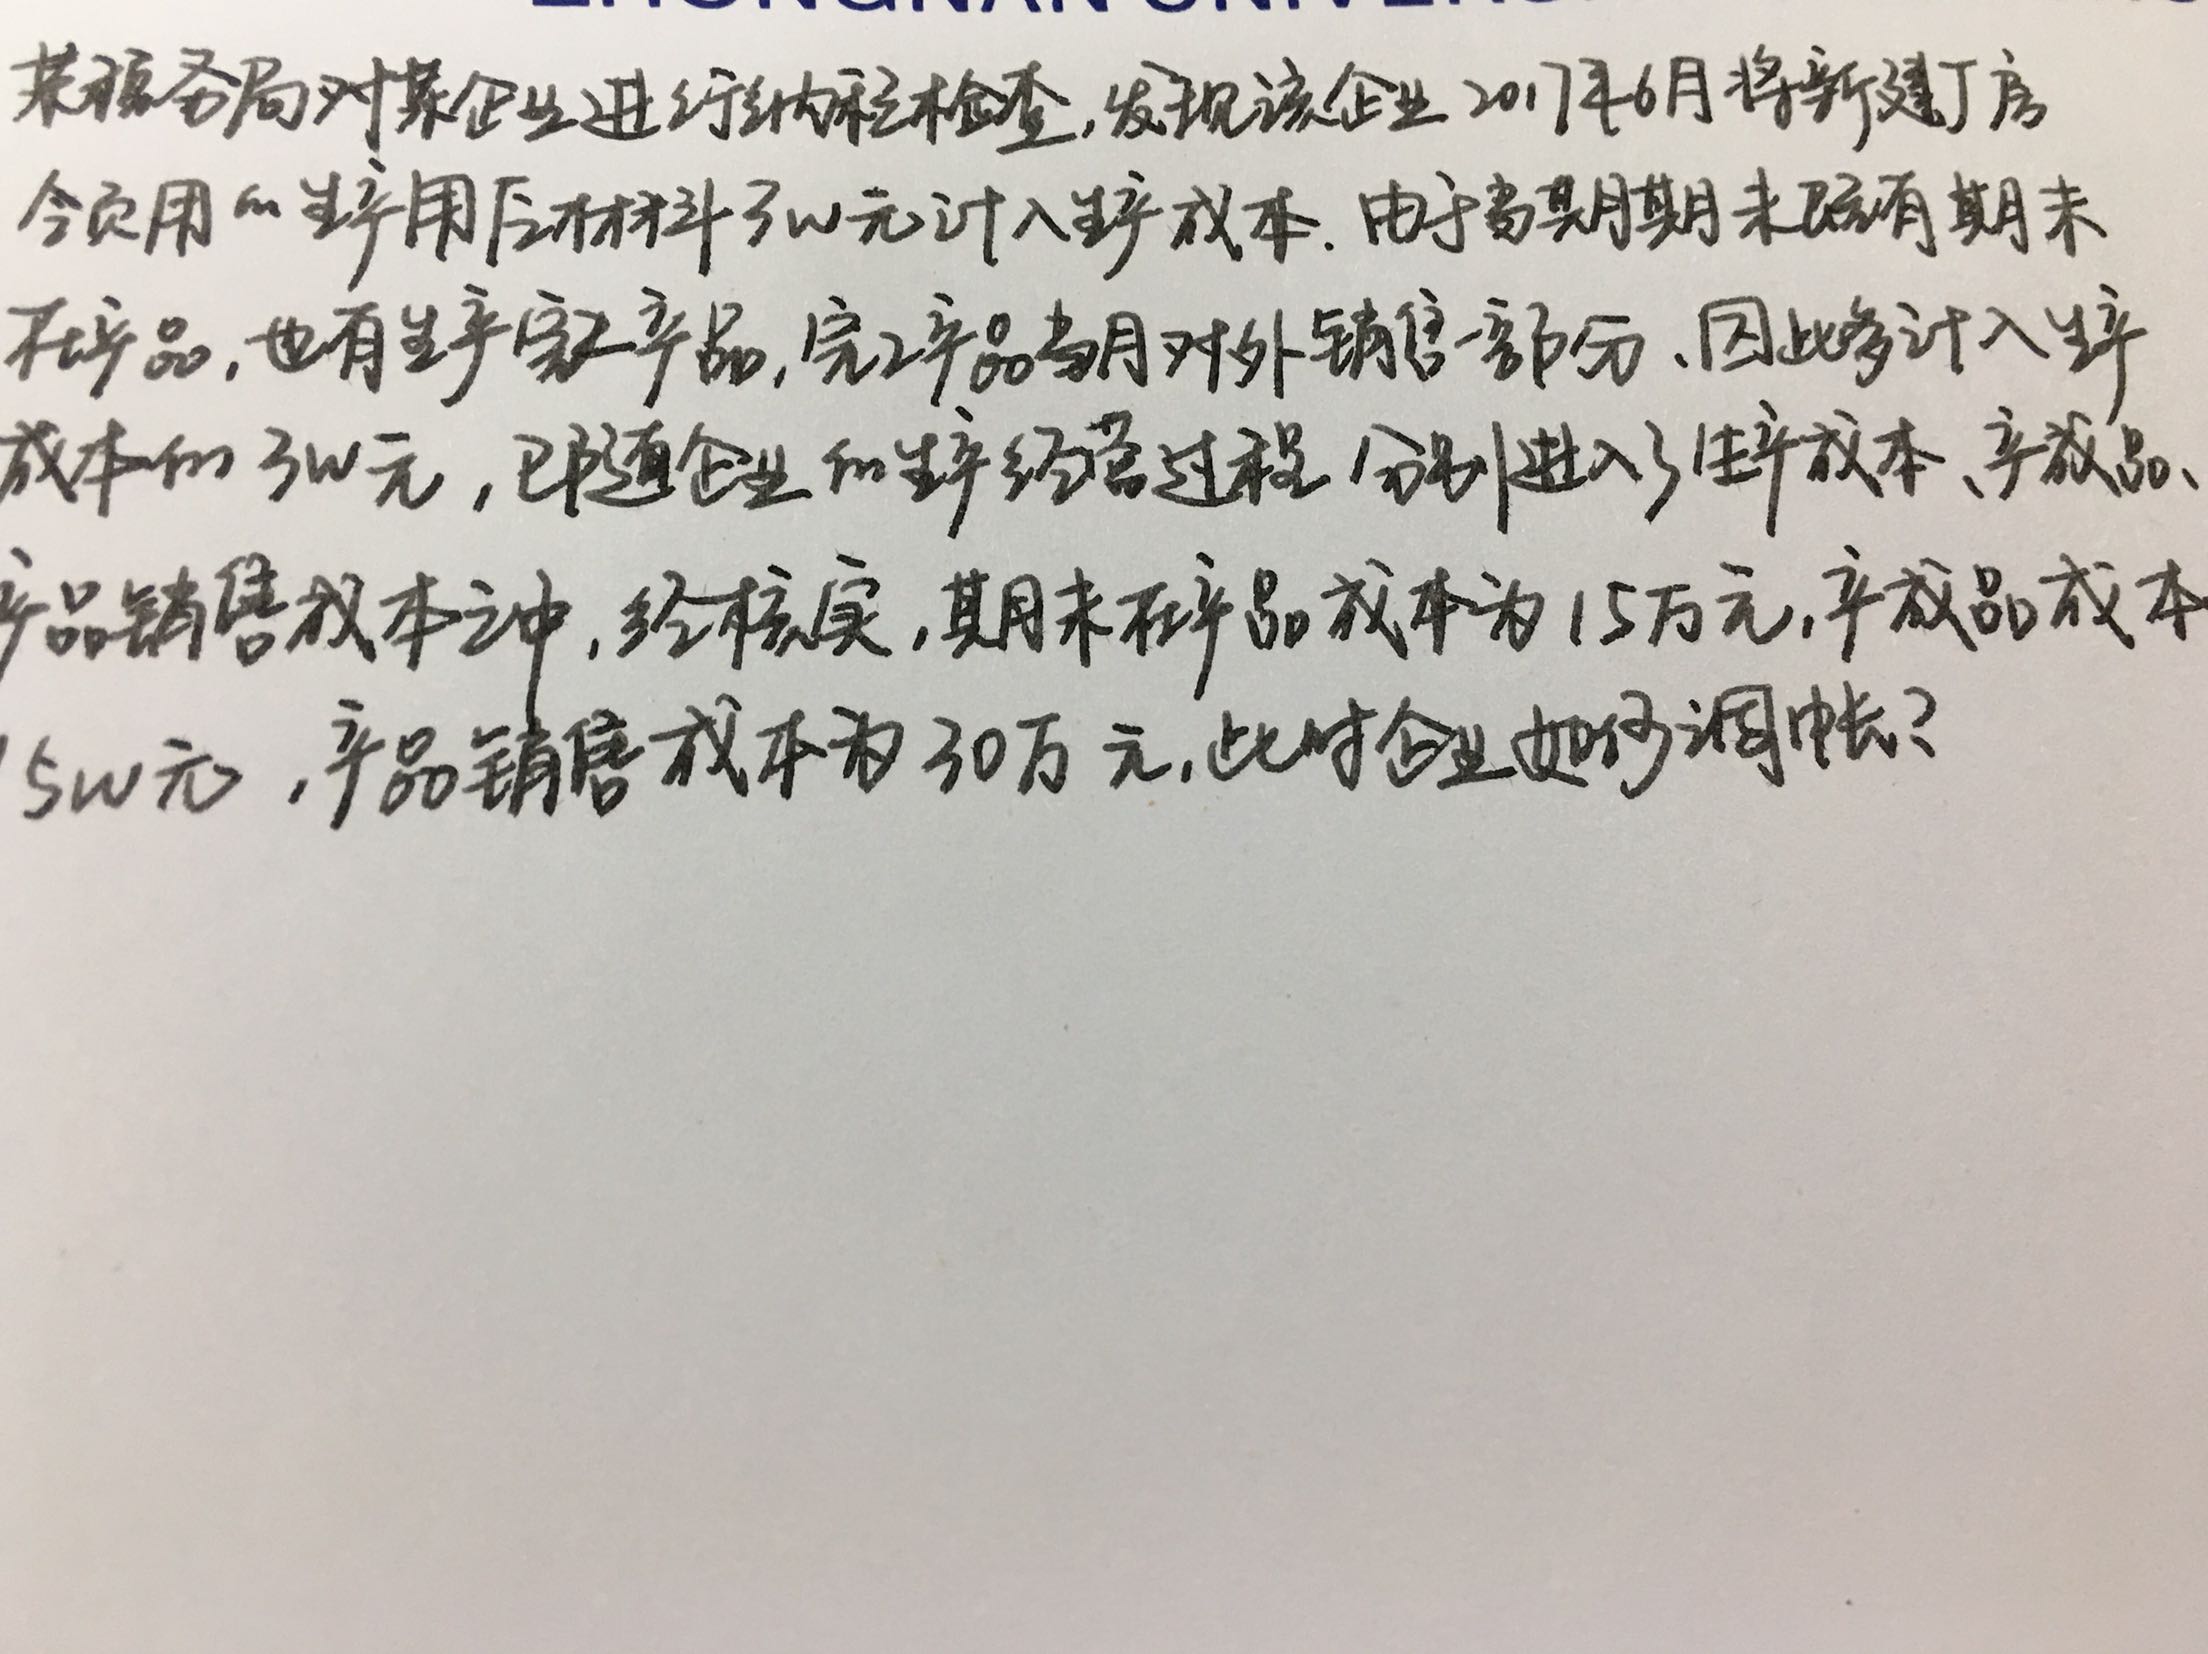 ZHONGNAN UNIVERS
某税务局对某企业进行纳税检查,发现该企业2017年6月将新建厂房
领用的生产用原材料3w元计入生产成本.由于当期期末既有期末
在产品,也有生产完工产品,完工产品当月对外销售一部分、因此多计入生产
成本的3w元,已随企业的生产经营过程分别进入了生产成本、产成品、
产品销售成本之中,经核实,期末在产品成本为15万元,产成品成本
15w元,产品销售成本为30万元,此时企业如何调帐?